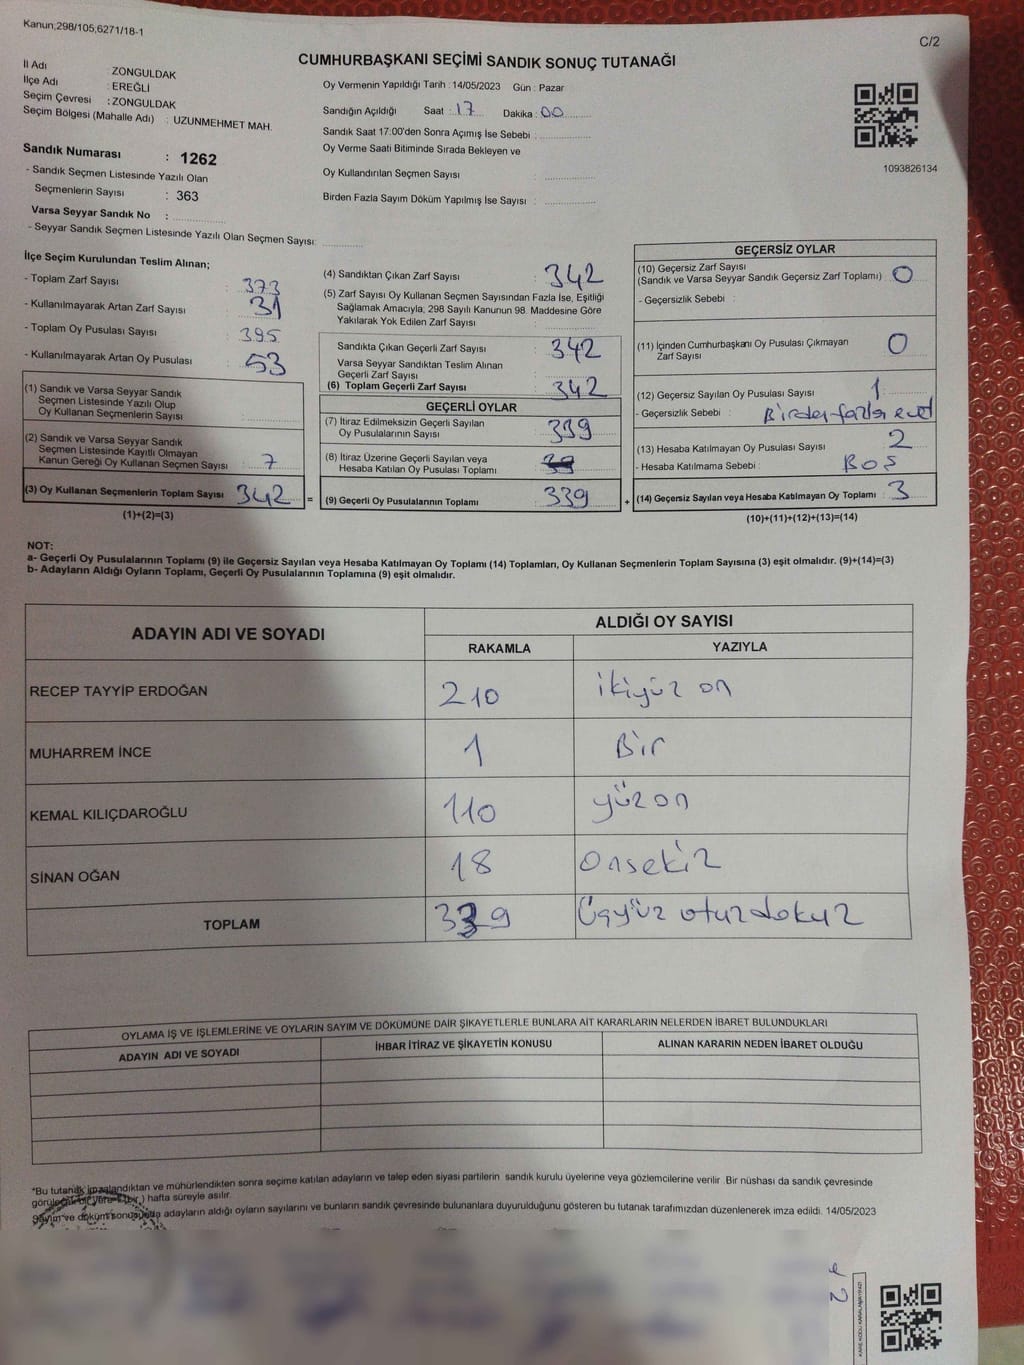 Kanun;298/105,6271/18-1
C/2
CUMHURBAŞKANI SEÇİMİ SANDIK SONUÇ TUTANAĞI
İl Adı : ZONGULDAK
İlçe Adı : EREĞLİ
Seçim Çevresi : ZONGULDAK
Seçim Bölgesi (Mahalle Adı) : UZUNMEHMET MAH.
Oy Vermenin Yapıldığı Tarih : 14/05/2023 Gün : Pazar
Sandığın Açıldığı Saat : 17 Dakika : 00
Sandık Saat 17:00'den Sonra Açımış İse Sebebi :
Oy Verme Saati Bitiminde Sırada Bekleyen ve
Oy Kullandırılan Seçmen Sayısı :
Birden Fazla Sayım Döküm Yapılmış İse Sayısı :
1093826134
Sandık Numarası : 1262
- Sandık Seçmen Listesinde Yazılı Olan
Seçmenlerin Sayısı : 363
Varsa Seyyar Sandık No :
- Seyyar Sandık Seçmen Listesinde Yazılı Olan Seçmen Sayısı:
İlçe Seçim Kurulundan Teslim Alınan;
- Toplam Zarf Sayısı : 373
- Kullanılmayarak Artan Zarf Sayısı : 31
- Toplam Oy Pusulası Sayısı : 395
- Kullanılmayarak Artan Oy Pusulası : 53
(1) Sandık ve Varsa Seyyar Sandık
Seçmen Listesinde Yazılı Olup
Oy Kullanan Seçmenlerin Sayısı :
(2) Sandık ve Varsa Seyyar Sandık
Seçmen Listesinde Kayıtlı Olmayan
Kanun Gereği Oy Kullanan Seçmen Sayısı : 7
(3) Oy Kullanan Seçmenlerin Toplam Sayısı 342 =
(1)+(2)=(3)
(4) Sandıktan Çıkan Zarf Sayısı : 342
(5) Zarf Sayısı Oy Kullanan Seçmen Sayısından Fazla İse, Eşitliği
Sağlamak Amacıyla, 298 Sayılı Kanunun 98. Maddesine Göre
Yakılarak Yok Edilen Zarf Sayısı :
Sandıkta Çıkan Geçerli Zarf Sayısı : 342
Varsa Seyyar Sandıktan Teslim Alınan
Geçerli Zarf Sayısı :
(6) Toplam Geçerli Zarf Sayısı : 342
GEÇERLİ OYLAR
(7) İtiraz Edilmeksizin Geçerli Sayılan
Oy Pusulalarının Sayısı : 339
(8) İtiraz Üzerine Geçerli Sayılan veya
Hesaba Katılan Oy Pusulası Toplamı :
(9) Geçerli Oy Pusulalarının Toplamı : 339 +
GEÇERSİZ OYLAR
(10) Geçersiz Zarf Sayısı
(Sandık ve Varsa Seyyar Sandık Geçersiz Zarf Toplamı) : 0
- Geçersizlik Sebebi :
(11) İçinden Cumhurbaşkanı Oy Pusulası Çıkmayan
Zarf Sayısı : 0
(12) Geçersiz Sayılan Oy Pusulası Sayısı : 1
- Geçersizlik Sebebi : Birden fazla evet
(13) Hesaba Katılmayan Oy Pusulası Sayısı : 2
- Hesaba Katılmama Sebebi : BOŞ
(14) Geçersiz Sayılan veya Hesaba Katılmayan Oy Toplamı : 3
(10)+(11)+(12)+(13)=(14)
NOT:
a- Geçerli Oy Pusulalarının Toplamı (9) ile Geçersiz Sayılan veya Hesaba Katılmayan Oy Toplamı (14) Toplamları, Oy Kullanan Seçmenlerin Toplam Sayısına (3) eşit olmalıdır. (9)+(14)=(3)
b- Adayların Aldığı Oyların Toplamı, Geçerli Oy Pusulalarının Toplamına (9) eşit olmalıdır.
ADAYIN ADI VE SOYADI
ALDIĞI OY SAYISI
RAKAMLA YAZIYLA
RECEP TAYYİP ERDOĞAN 210 ikiyüz on
MUHARREM İNCE 1 Bir
KEMAL KILIÇDAROĞLU 110 yüz on
SİNAN OĞAN 18 onsekiz
TOPLAM 339 Üçyüz otuzdokuz
OYLAMA İŞ VE İŞLEMLERİNE VE OYLARIN SAYIM VE DÖKÜMÜNE DAİR ŞİKAYETLERLE BUNLARA AİT KARARLARIN NELERDEN İBARET BULUNDUKLARI
ADAYIN ADI VE SOYADI İHBAR İTİRAZ VE ŞİKAYETİN KONUSU ALINAN KARARIN NEDEN İBARET OLDUĞU
*Bu tutanak imzalandıktan ve mühürlendikten sonra seçime katılan adayların ve talep eden siyasi partilerin sandık kurulu üyelerine veya gözlemcilerine verilir. Bir nüshası da sandık çevresinde
görülecek bir yere 1 (bir) hafta süreyle asılır.
Sayım ve döküm sonucunda adayların aldığı oyların sayılarını ve bunların sandık çevresinde bulunanlara duyurulduğunu gösteren bu tutanak tarafımızdan düzenlenerek imza edildi. 14/05/2023